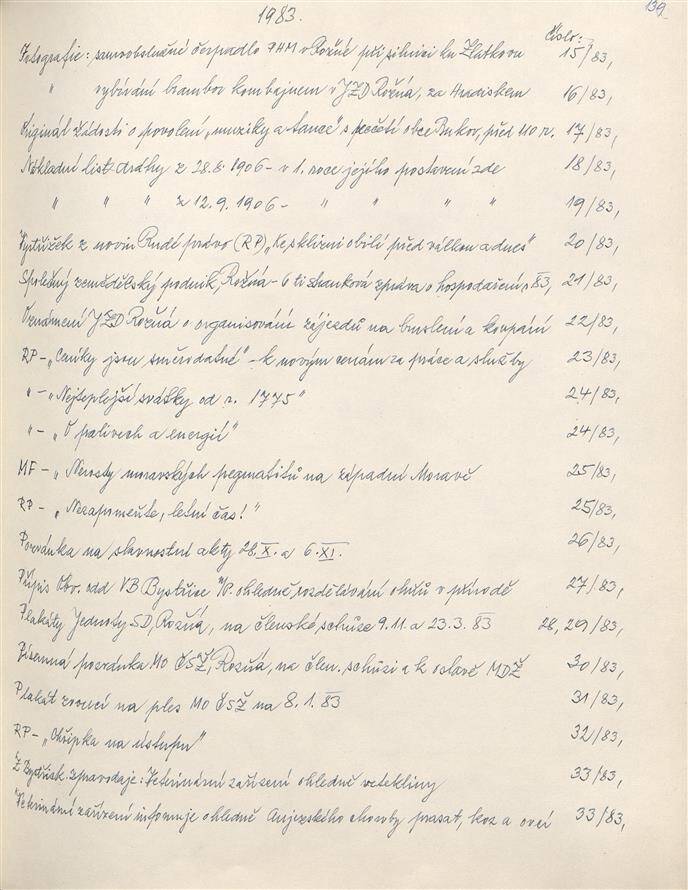 139
1983.
Číslo:
Fotografie: samoobslužné čerpadlo PHM v Rožné při silnici ku Zlatkovu 15/83,
" vybírání brambor kombajnem v JZD Rožná, za Hradiskem 16/83,
Originál žádosti o povolení „muziky a tance" s pečetí obce Bukov, před 110 r. 17/83,
Nákladní list dráhy z 28.8. 1906 - v 1. roce jejího postavení zde 18/83,
" " " z 12.9. 1906 - " " " " 19/83,
Výstřižek z novin Rudé právo (RP) „Ke sklizni obilí před válkou a dnes" 20/83,
Společný zemědělský podnik, Rožná - 6 ti stránková zpráva o hospodaření r. 83, 21/83,
Oznámení JZD Rožná o organisování zájezdů na bruslení a koupání 22/83,
RP - „Ceníky jsou směrodatné" - k novým cenám za práce a služby 23/83,
" - „Nejteplejší svátky od r. 1775" 24/83,
" - „O palivech a energii" 24/83,
MF - „Nerosty moravských pegmatitů na západní Moravě 25/83,
RP - „Nezapomeňte, letní čas!" 25/83,
Pozvánka na slavnostní akty 28.X. a 6.XI. 26/83,
Přípis Obv. odd VB Bystřice n/P. ohledně rozdělávání ohňů v přírodě 27/83,
Plakáty Jednoty SD, Rožná, na členské schůze 9.11. a 23.3. 83 28, 29/83,
Písemná pozvánka MO ČSŽ, Rožná, na člen. schůzi a k oslavě MDŽ 30/83,
Plakát zvoucí na ples MO ČSŽ na 8.1. 83 31/83,
RP - „Chřipka na ústupu" 32/83,
Z Bystřick. zpravodaje: Veterinární zařízení ohledně vztekliny 33/83,
Veterinární zařízení informuje ohledně Aujezského choroby prasat, koz a ovcí 33/83,